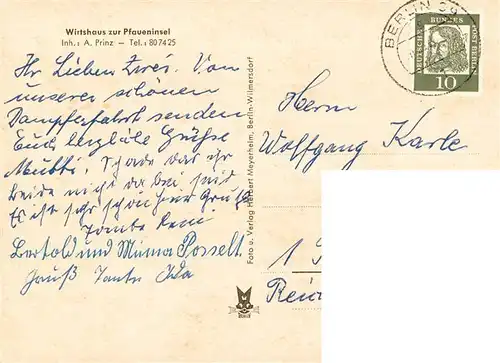 Wirtshaus zur Pfaueninsel
Inh.: A. Prinz — Tel.: 807425
Ihr Lieben Zwei. Von
unserer schönen
Dampferfahrt senden
Euch herzliche Grüße
Mutti. Schade das ihr
beide nicht da bei seid
Es ist sehr schön hier Gruß
Tante
Bertold und Minna Posselt
Gruß Tante Ida
Foto u. Verlag Herbert Meyerheim, Berlin-Wilmersdorf
BERLIN 39
DEUTSCHE BUNDESPOST BERLIN
10
Herrn
Wolfgang Karle
1